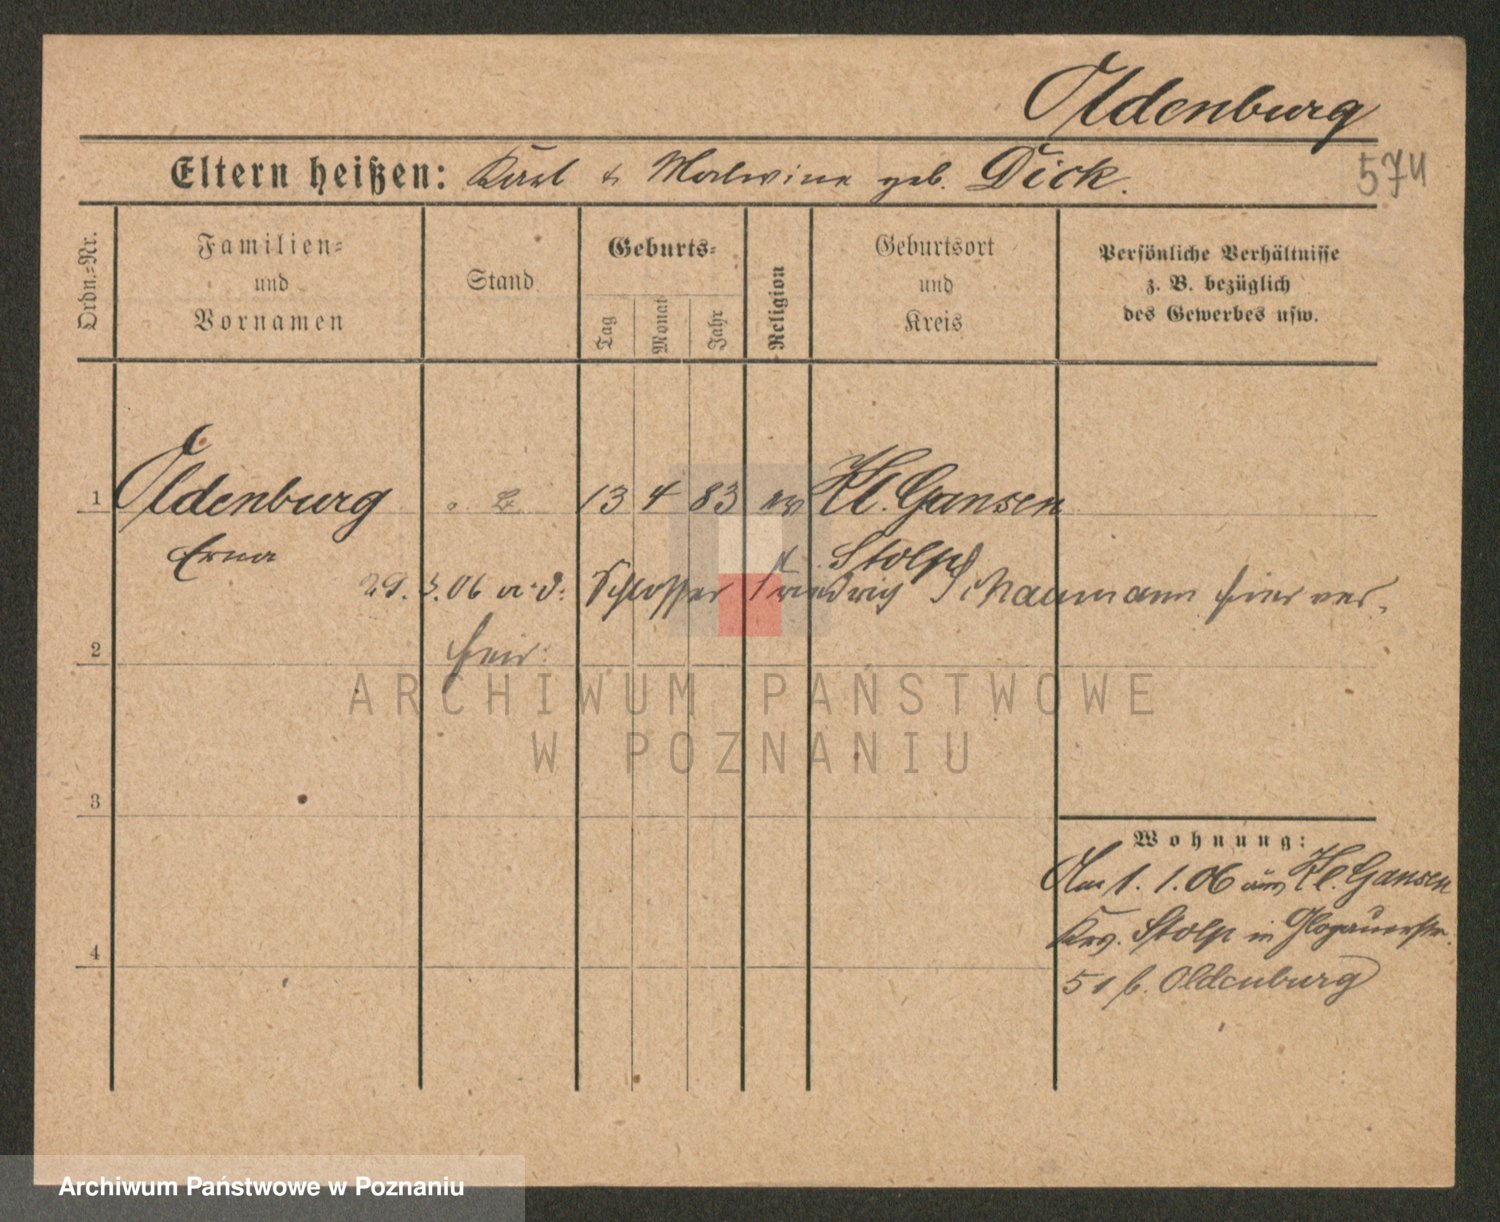 Oldenburg
Eltern heißen: Karl & Malwine geb. Dick.
574
Ordn.=Nr.
Familien=
und
Vornamen
Stand
Geburts=
Tag
Monat
Jahr
Religion
Geburtsort
und
Kreis
Persönliche Verhältnisse
z. B. bezüglich
des Gewerbes usw.
1 Oldenburg 13 4 83 ev Kl. Gansen
Erna Stolp
29. 3. 06 m. d. Schlosser Friedrich Naumann hier ver=
heir.
2
ARCHIWUM PAŃSTWOWE
W POZNANIU
3
Wohnung:
Am 1. 1. 06 aus Kl. Gansen
Krs. Stolp in Glogauerstr.
4
51 b. Oldenburg
Archiwum Państwowe w Poznaniu